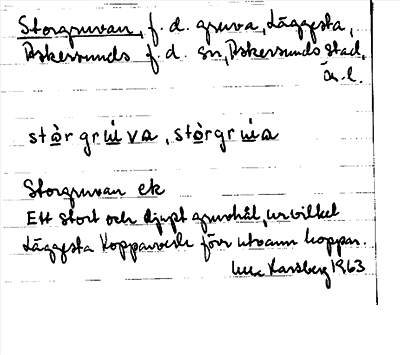 Storgruvan, f.d. gruva, Läggesta,
Askersunds f.d. sn, Askersunds stad,
Ö.l.
stòr grùva, stòrgrùa
Storgruvan ek
Ett stort och djupt gruvhål, ur vilket
Läggesta Kopparverk förr utvann koppar.
Karsberg 1963